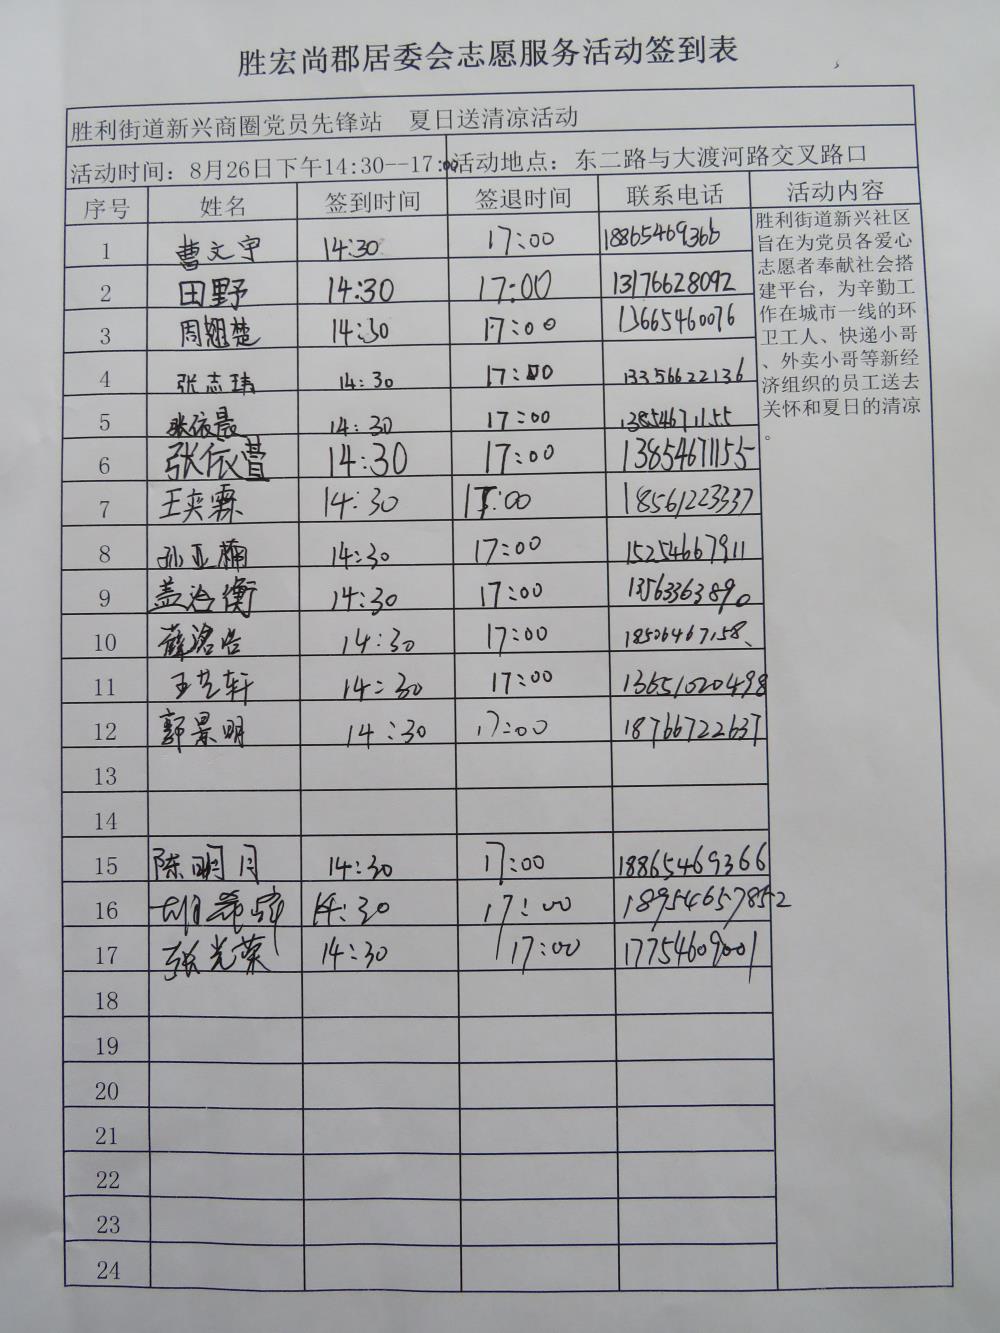 胜宏尚郡居委会志愿服务活动签到表
胜利街道新兴商圈党员先锋站 夏日送清凉活动
活动时间：8月26日下午14:30--17:00 活动地点：东二路与大渡河路交叉路口
序号 姓名 签到时间 签退时间 联系电话 活动内容
胜利街道新兴社区
旨在为党员各爱心
志愿者奉献社会搭
建平台，为辛勤工
作在城市一线的环
卫工人、快递小哥
、外卖小哥等新经
济组织的员工送去
关怀和夏日的清凉
。
1 曹文宇 14:30 17:00 18865469366
2 田野 14:30 17:00 13176628092
3 周翘楚 14:30 17:00 13665460076
4 张志玮 14:30 17:00 13356622136
5 张依晨 14:30 17:00 13854671155
6 张依萱 14:30 17:00 13854671155
7 王奕霖 14:30 17:00 18561223337
8 孙亚楠 14:30 17:00 15254667911
9 盖治衡 14:30 17:00 13563363890
10 薛洺浩 14:30 17:00 18506467158
11 王艺轩 14:30 17:00 13651020498
12 郭景明 14:30 17:00 18766722637
13
14
15 陈明月 14:30 17:00 18865469366
16 14:30 17:00 18954657852
17 张光荣 14:30 17:00 17754609001
18
19
20
21
22
23
24